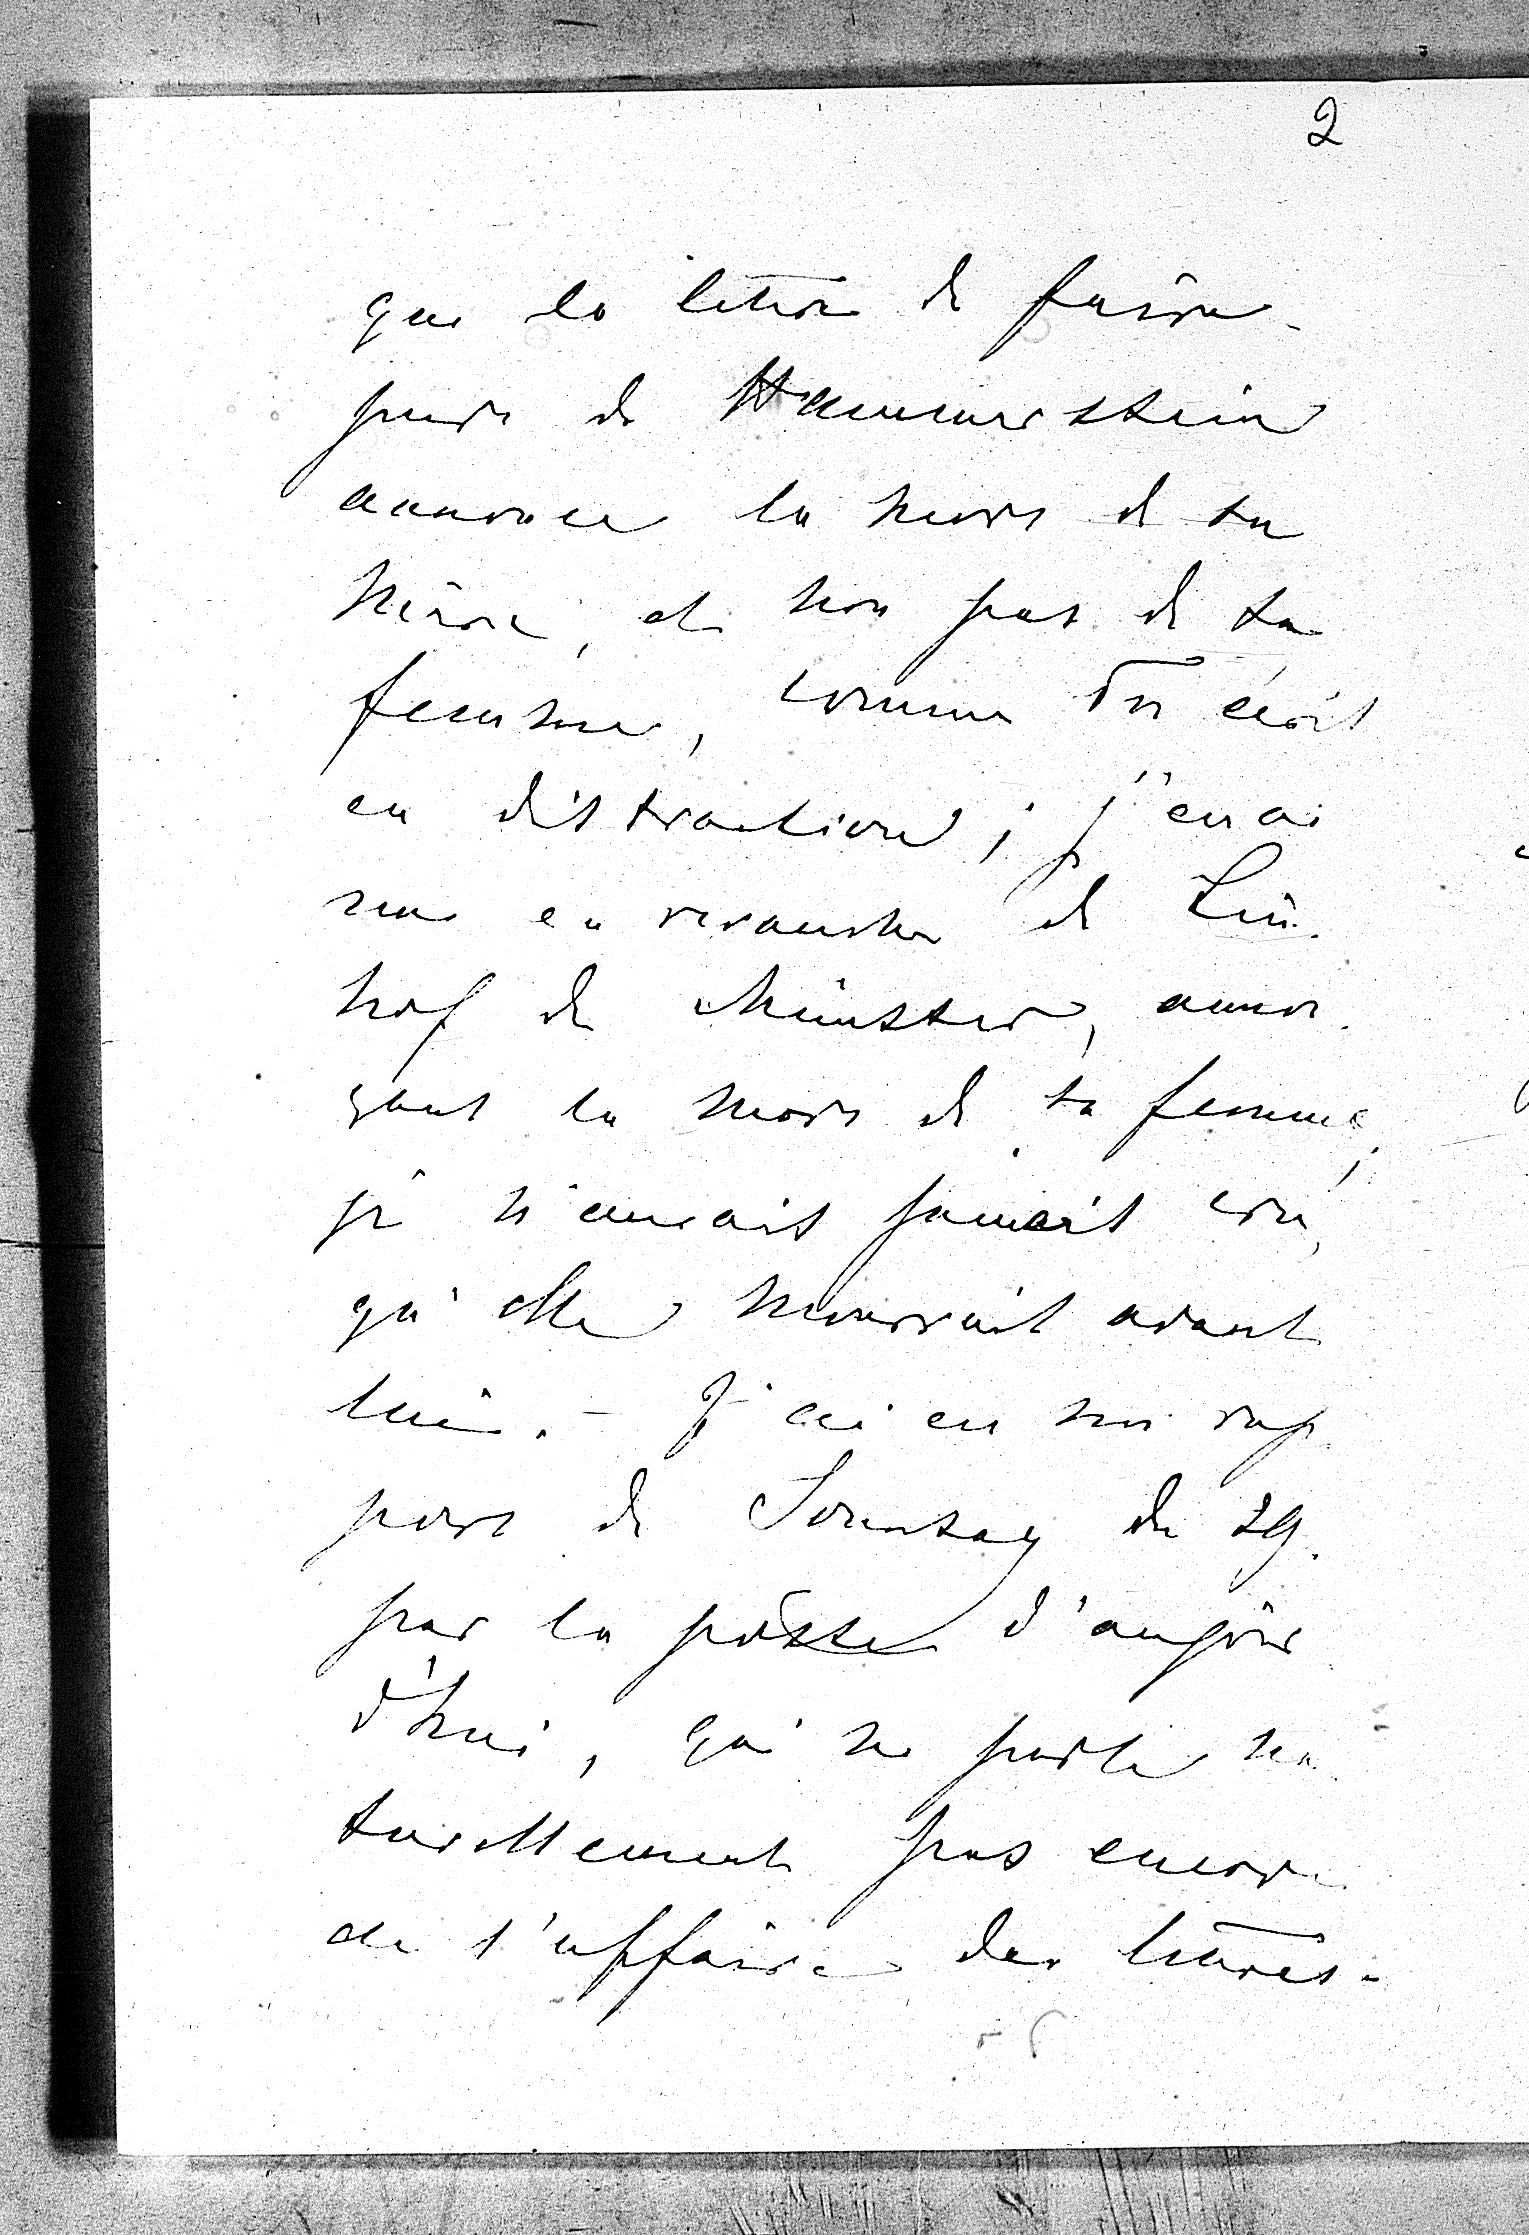 2
que la lettre de faire-
part de Hammerstein
annonce la mort de sa
mère, et non pas de sa
femme, comme Tu écris
en distraction; j'en ai
une en revanche de
hof de Münster, annon-
çant la mort de sa femme;
je n'aurais jamais cru,
qu'elle mourrait avant
lui. – J'ai eu un rap-
port de Sonntag du 29.
par la poste d'aujour
d'hui, qui ne parle na-
turellement pas encore
de l'affaire des lettres.-